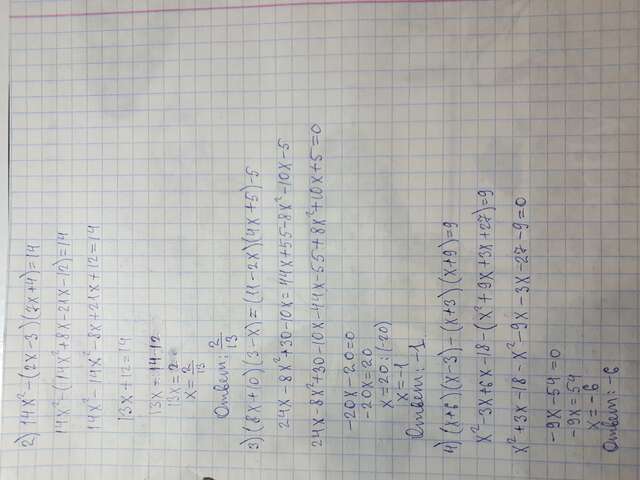 2) 14x²-(2x-3)(7x+4)=14
14x²-(14x²+8x-21x-12)=14
14x²-14x²-8x+21x+12=14
13x+12=14
13x=14-12
13x=2
x=2/13
Ответ: 2/13
3)(8x+10)(3-x)=(11-2x)(4x+5)-5
24x-8x²+30-10x=44x+55-8x²-10x-5
24x-8x²+30-10x-44x-55+8x²+10x+5=0
-20x-20=0
-20x=20
x=20:(-20)
x=-1
Ответ: -1.
4)(x+6)(x-3)-(x+3)(x+9)=9
x²-3x+6x-18-(x²+9x+3x+27)=9
x²+3x-18-x²-9x-3x-27-9=0
-9x-54=0
-9x=54
x=-6
Ответ: -6